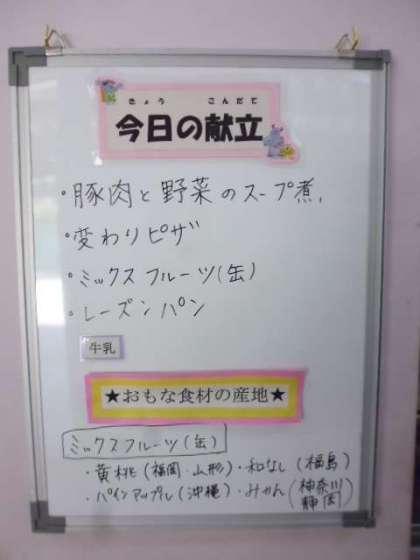 きょう こんだて
今日の献立
・豚肉と野菜のスープ煮
・変わりピザ
・ミックスフルーツ(缶)
・レーズンパン
牛乳
★おもな食材の産地★
ミックスフルーツ(缶)
・黄桃(福岡・山形)・和なし(福島)
・パインアップル(沖縄)・みかん(神奈川
静岡)